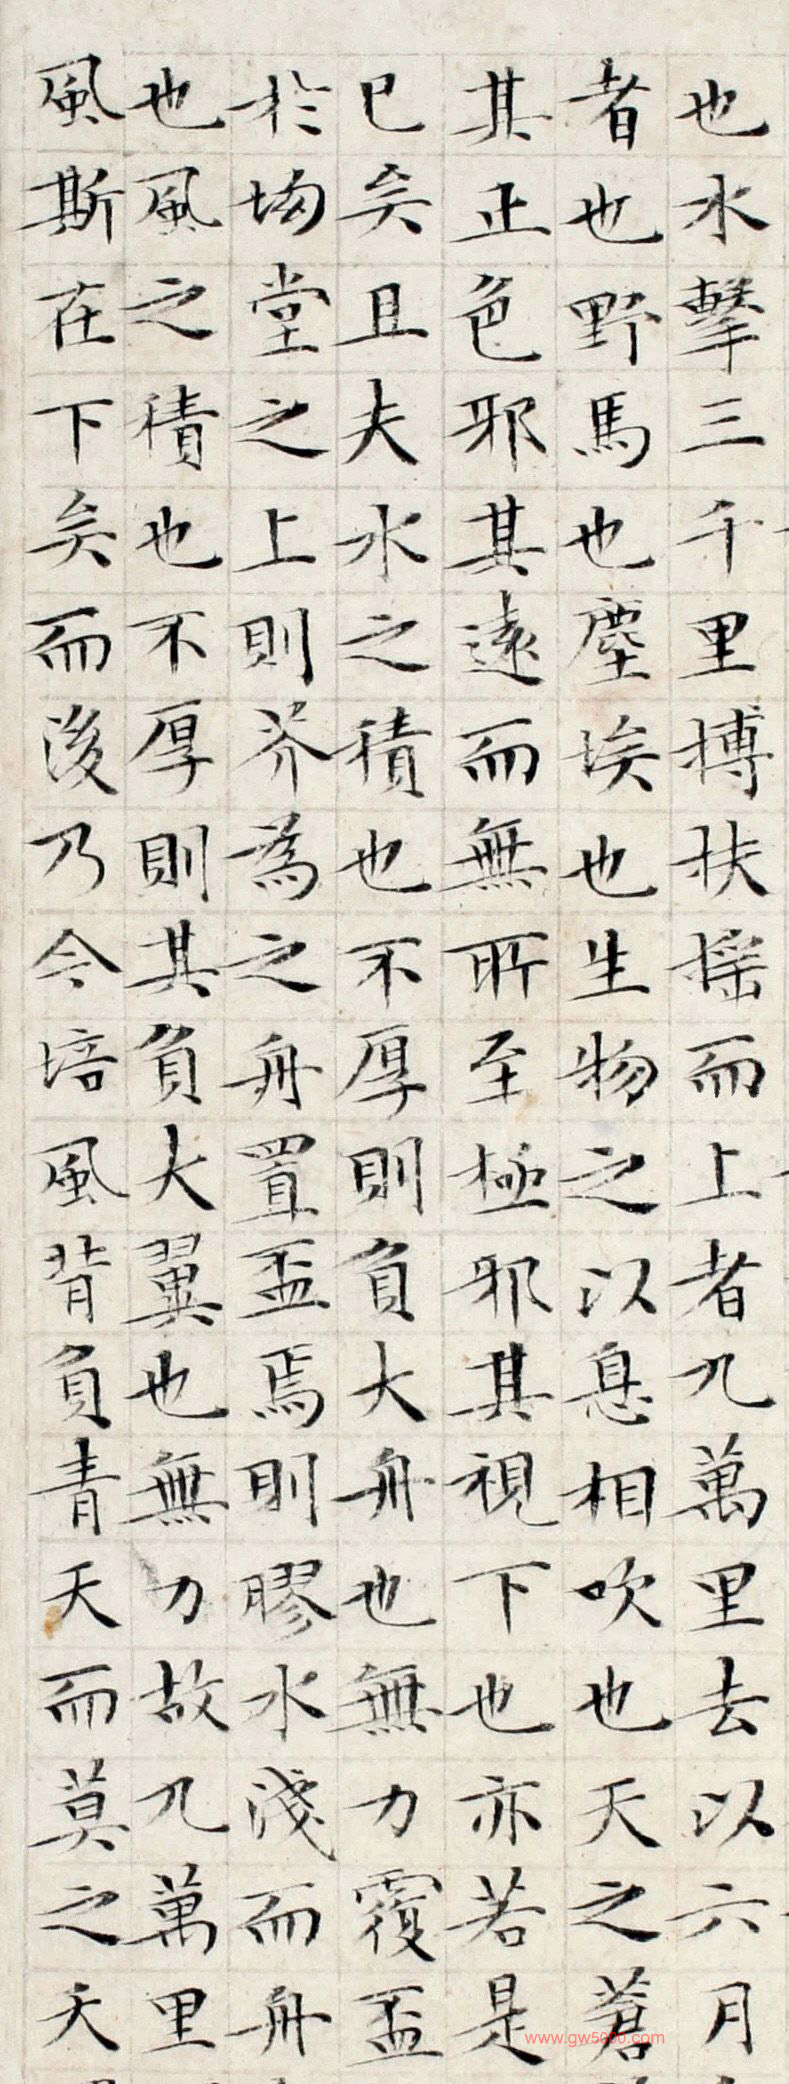 也水擊三千里搏扶搖而上者九萬里去以六月
者也野馬也塵埃也生物之以息相吹也天之蒼
其正色邪其遠而無所至極邪其視下也亦若是
已矣且夫水之積也不厚則負大舟也無力覆盃
於坳堂之上則芥為之舟置盃焉則膠水淺而舟
也風之積也不厚則其負大翼也無力故九萬里
風斯在下矣而後乃今培風背負青天而莫之夭
www.gw5000.com